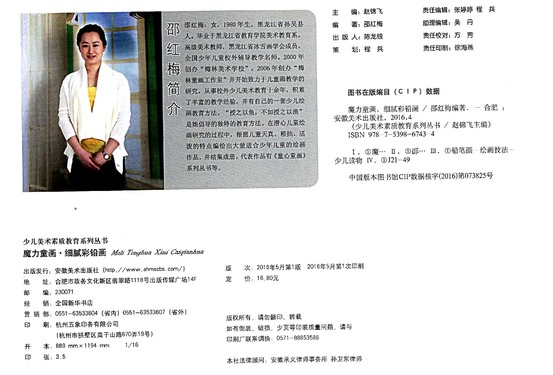 邵红梅简介
邵红梅：女，1980年生，黑龙江省孙吴县
人，毕业于黑龙江省教育学院美术教育系，
高级美术教师，黑龙江省冰雪画学会成员，
全国少年儿童校外辅导教学名师。2000年
创办“梅林美术学校”，2006年创办“梅
林童画工作室”并开始致力于儿童画教学的
研究。从事校外少儿美术教育十余年，积累
了丰富的教学经验，并有自己的一套少儿绘
画教育方法。“授之以鱼，不如授之以渔”
是她倡导的独特的教育方法，在潜心儿童绘
画研究的过程中，根据儿童天真、稚拙、活
泼的特点编绘出大量适合少年儿童的绘画
作品，并结集成册。代表作品有《童心童画》
系列丛书等。
主　编：赵锦飞　责任编辑：张婷婷 程 兵
编　著：邵红梅　助理编辑：吴 丹
出 版 人：陈龙银　责任校对：方 芳
策　划：程 兵　责任印制：徐海燕
图书在版编目（CIP）数据
魔力童画。细腻彩铅画 / 邵红梅编著. -- 合肥：
安徽美术出版社，2016.4
（少儿美术素质教育系列丛书 / 赵锦飞主编）
ISBN 978-7-5398-6743-4
Ⅰ.①魔… Ⅱ.①邵… Ⅲ.①铅笔画－绘画技法－
少儿读物 Ⅳ.①J21-49
中国版本图书馆CIP数据核字(2016)第073825号
少儿美术素质教育系列丛书
魔力童画·细腻彩铅画 Moli Tonghua Xini Caiqianhua
出版发行：安徽美术出版社 (http://www.ahmscbs.com/)
地　址：合肥市政务文化新区翡翠路1118号出版传媒广场14F
邮　编：230071
经　销：全国新华书店
营 销 部：0551-63533604（省内）0551-63533607（省外）
印　刷：杭州五象印务有限公司
（杭州市拱墅区莫干山路670弄19号）
开　本：889 mm×1194 mm　1/16
印　张：3.5
版　次：2016年5月第1版　2016年5月第1次印刷
定　价：16.80元
版权所有，请勿翻印、转载
如有倒装、破损、少页等印装质量问题，请与
印刷厂联系调换。0571-88853586
本社法律顾问：安徽承义律师事务所　孙卫东律师